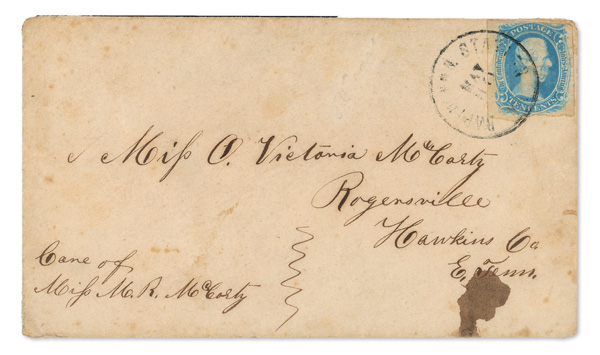 POSTAGE
TEN CENTS
MAY
Miss O. Victoria McCarty
Rogersville
Hawkins Co
E. Tenn.
Care of
Miss M. R. McCarty